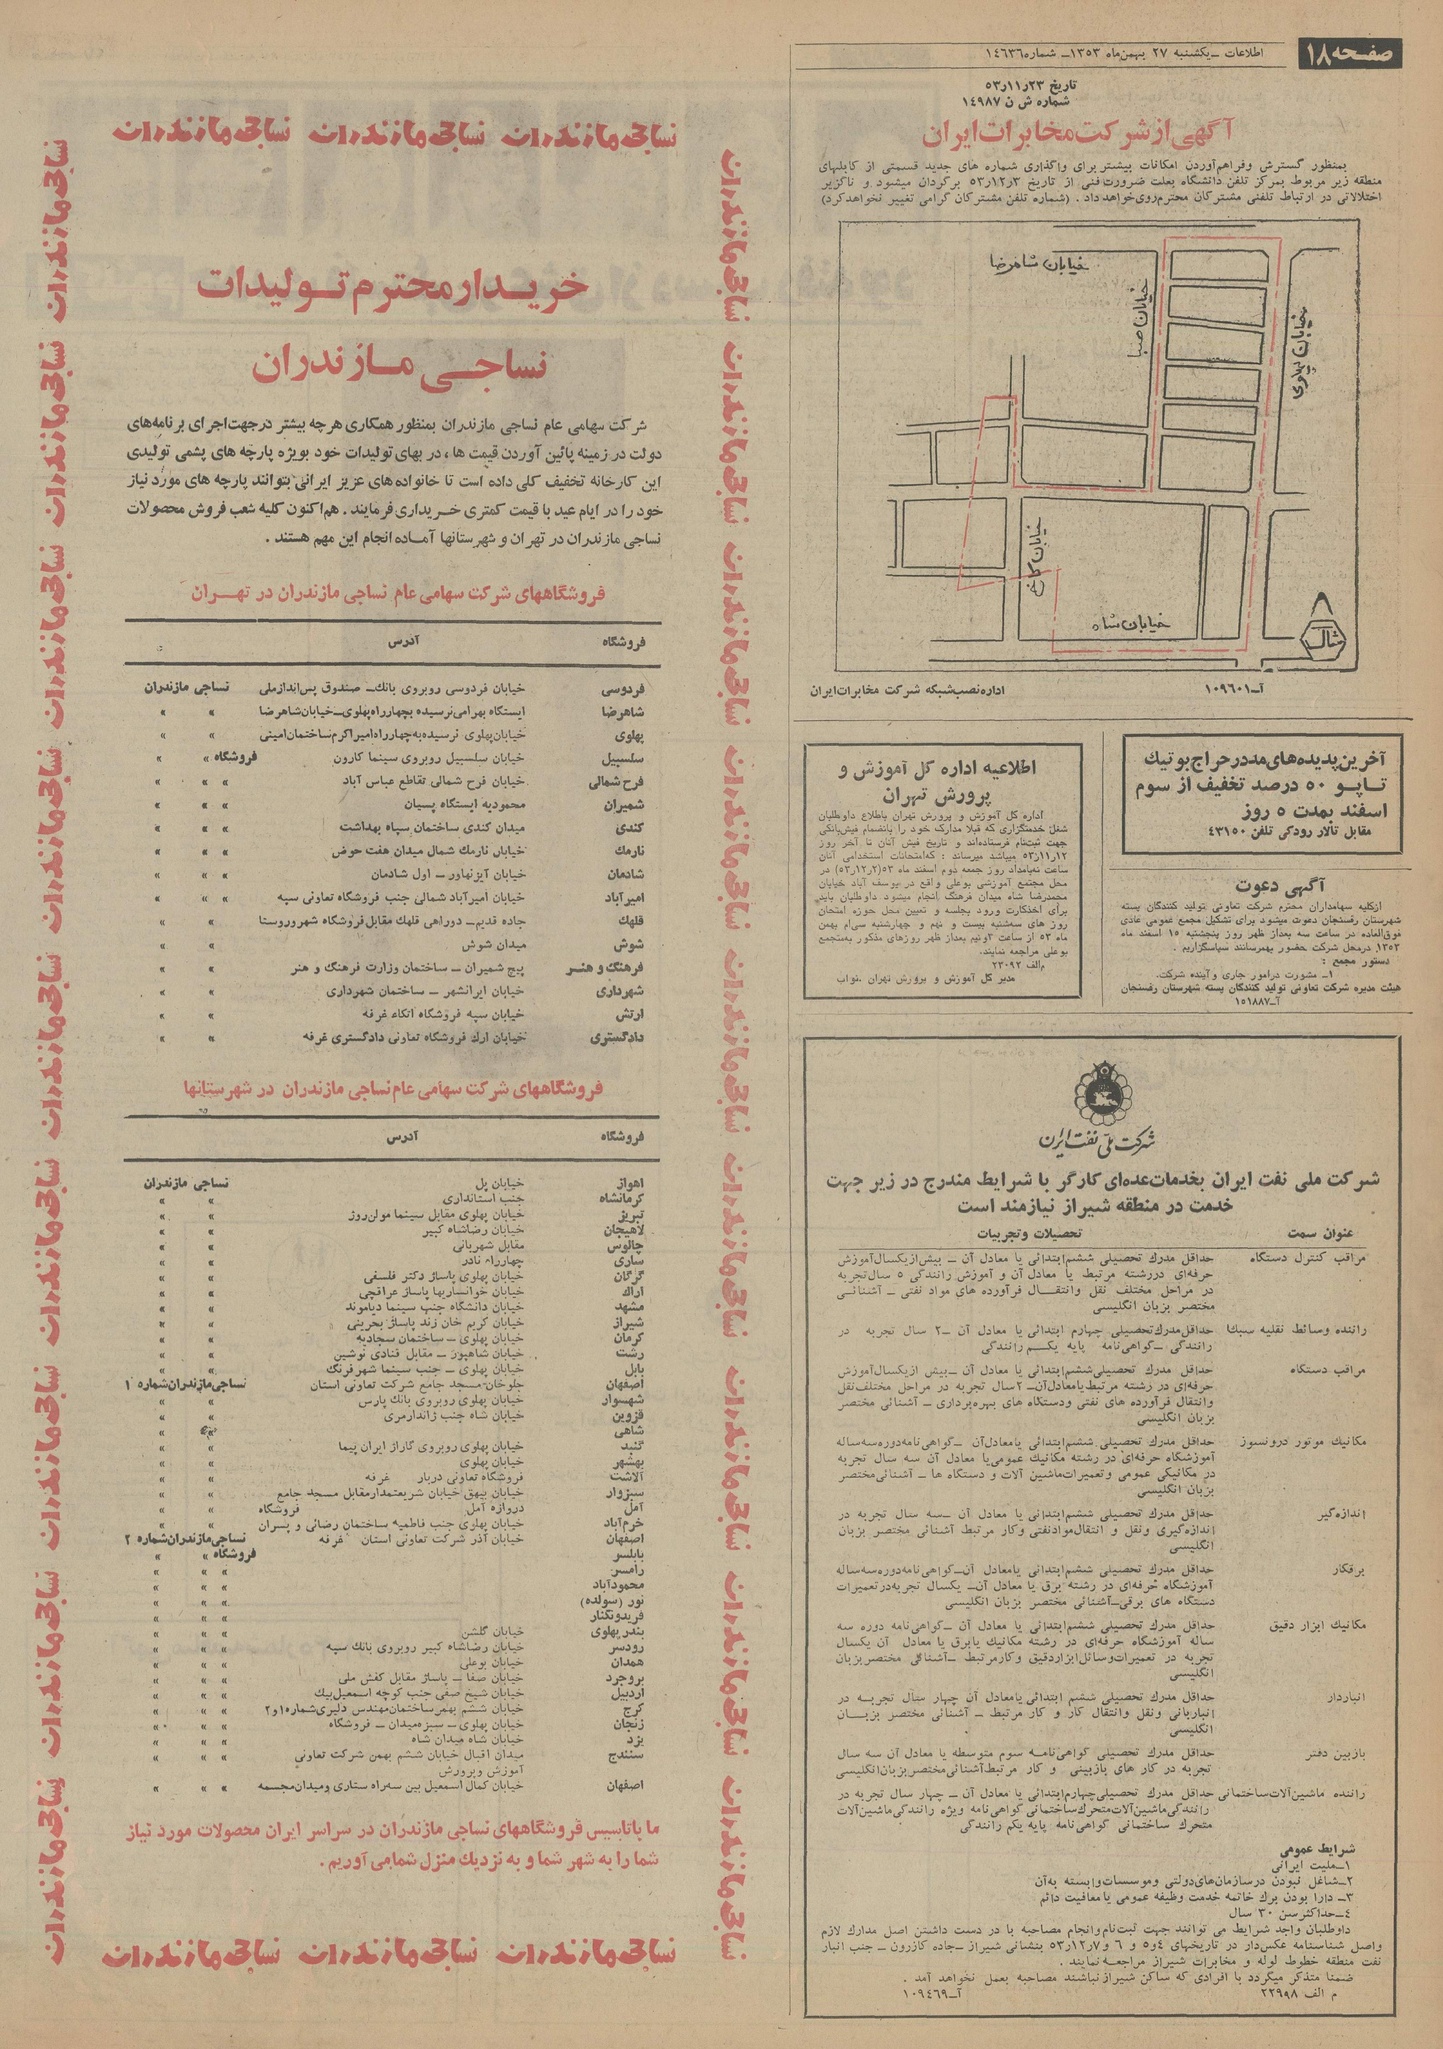 صفحه ۱۸
اطلاعات ـ یکشنبه ۲۷ بهمن‌ماه ۱۳۵۳ ـ شماره ۱۴۶۳۶
تاریخ ۲۳ر۱۱ر۵۳
شماره ش ن ۱۴۹۸۷
آگهی از شرکت مخابرات ایران
بمنظور گسترش و فراهم آوردن امکانات بیشتر برای واگذاری شماره های جدید قسمتی از کابلهای
منطقه زیر مربوط بمرکز تلفن دانشگاه بعلت ضرورت فنی از تاریخ ۳ر۱۲ر۵۳ برگردان میشود و ناگزیر
اختلالاتی در ارتباط تلفنی مشترکان محترم روی خواهد داد . (شماره تلفن مشترکان گرامی تغییر نخواهد کرد)
خیابان شاهرضا
خیابان صبا
خیابان پهلوی
خیابان کاخ
خیابان شاه
شمال
آـ۱۰۹۶۰۱
اداره نصب شبکه شرکت مخابرات ایران
آخرین پدیده‌های مد در حراج بوتیک
تاپو ۵۰ درصد تخفیف از سوم
اسفند بمدت ۵ روز
مقابل تالار رودکی تلفن ۴۳۱۵۰
آگهی دعوت
از کلیه سهامداران محترم شرکت تعاونی تولید کنندگان پسته
شهرستان رفسنجان دعوت میشود برای تشکیل مجمع عمومی عادی
فوق‌العاده در ساعت سه بعداز ظهر روز پنجشنبه ۱۵ اسفند ماه
۱۳۵۳ درمحل شرکت حضور بهمرسانند سپاسگزاریم .
دستور مجمع :
۱ـ مشورت درامور جاری و آینده شرکت.
هیئت مدیره شرکت تعاونی تولید کنندگان پسته شهرستان رفسنجان
آـ۱۵۱۸۸۷
اطلاعیه اداره کل آموزش و
پرورش تهران
اداره کل آموزش و پرورش تهران باطلاع داوطلبان
شغل خدمتگزاری که قبلا مدارک خود را بانضمام فیش بانکی
جهت ثبت‌نام فرستاده‌اند و تاریخ فیش آنان تا آخر روز
۱۲ر۱۱ر۵۳ میباشد میرساند : که امتحانات استخدامی آنان
ساعت نه بامداد روز جمعه دوم اسفند ماه ۵۳(۲ر۱۲ر۵۳) در
محل مجتمع آموزشی بوعلی واقع در یوسف آباد خیابان
محمدرضا شاه میدان فرهنگ انجام میشود داوطلبان باید
برای اخذکارت ورود بجلسه و تعیین محل حوزه امتحان
روز های سه‌شنبه بیست و نهم و چهارشنبه سی‌ام بهمن
ماه ۵۳ از ساعت ۲ونیم بعداز ظهر روزهای مذکور به‌مجتمع
بوعلی مراجعه نمایند.
م‌الف ۲۳۰۹۲
مدیر کل آموزش و پرورش تهران .نواب
شرکت ملی نفت ایران
شرکت ملی نفت ایران بخدمات عده‌ای کارگر با شرایط مندرج در زیر جهت
خدمت در منطقه شیراز نیازمند است
عنوان سمت تحصیلات و تجربیات
مراقب کنترل دستگاه حداقل مدرک تحصیلی ششم ابتدائی یا معادل آن ـ بیش از یکسال آموزش
حرفه‌ای دررشته مرتبط یا معادل آن و آموزش رانندگی ۵ سال تجربه
در مراحل مختلف نقل وانتقـــال فرآورده های مواد نفتی ـ آشنائــی
مختصر بزبان انگلیسی
راننده وسائط نقلیه سبک حداقل مدرک تحصیلی چهارم ابتدائی یا معادل آن ـ۲ سال تجربه در
رانندگی ـ گواهی نامه پایه یکــم رانندگی
مراقب دستگاه حداقل مدرک تحصیلی ششم ابتدائی یا معادل آن ـ بیش ازیکسال آموزش
حرفه‌ای در رشته مرتبط یا معادل آن ـ ۲سال تجربه در مراحل مختلف نقل
وانتقال فرآورده های نفتی ودستگاه های بهره‌برداری ـ آشنائی مختصر
بزبان انگلیسی
مکانیک موتور درونسوز حداقل مدرک تحصیلی ششم ابتدائی یا معادل آن ـ گواهی نامه دوره سه ساله
آموزشگاه حرفه‌ای در رشته مکانیک عمومی یا معادل آن سه سال تجربه
در مکانیکی عمومی و تعمیرات ماشین آلات و دستگاه ها ـ آشنائی مختصر
بزبان انگلیسی
اندازه گیر حداقل مدرک تحصیلی ششم ابتدائی یا معادل آن ـ سه سال تجربه در
اندازه گیری ونقل و انتقال مواد نفتی وکار مرتبط آشنائی مختصر بزبان
انگلیسی
برقکار حداقل مدرک تحصیلی ششم ابتدائی یا معادل آن ـ گواهی نامه دوره سه ساله
آموزشگاه حرفه‌ای در رشته برق یا معادل آن ـ یکسال تجربه در تعمیرات
دستگاه های برقی ـ آشنائی مختصر بزبان انگلیسی
مکانیک ابزار دقیق حداقل مدرک تحصیلی ششم ابتدائی یا معادل آن ـ گواهی نامه دوره سه
ساله آموزشگاه حرفه‌ای در رشته مکانیک یا برق یا معادل آن یکسال
تجربه در تعمیرات وسائل ابزار دقیق و کار مرتبط ـ آشنائی مختصر بزبان
انگلیسی
انباردار حداقل مدرک تحصیلی ششم ابتدائی یا معادل آن چهار سال تجربــه در
انباربانی ونقل وانتقال کار و کار مرتبط ـ آشنائی مختصر بزبــان
انگلیسی
بازبین دفتر حداقل مدرک تحصیلی گواهی نامــه سوم متوسطه یا معادل آن سه سال
تجربه در کار های بازبینی و کار مرتبط آشنائی مختصر بزبان انگلیسی
راننده ماشین آلات ساختمانی حداقل مدرک تحصیلی چهارم ابتدائی یا معادل آن ـ چهار سال تجربه در
رانندگی ماشین آلات متحرک ساختمانی گواهی نامه ویژه رانندگی ماشین آلات
متحرک ساختمانی گواهی نامه پایه یکم رانندگی
شرایط عمومی
۱ـ ملیت ایرانی
۲ـ شاغل نبودن در سازمان‌های دولتی و موسسات وابسته به آن
۳ـ دارا بودن برگ خاتمه خدمت وظیفه عمومی یا معافیت دائم
۴ـ حداکثر سن ۳۰ سال
داوطلبان واجد شرایط می توانند جهت ثبت‌نام و انجام مصاحبه با در دست داشتن اصل مدارک لازم
واصل شناسنامه عکس‌دار در تاریخهای ۴و۵ و ۶ و ۷ر۱۲ر۵۳ بنشانی شیراز ـ جاده کازرون ـ جنب انبار
نفت منطقه خطوط لوله و مخابرات شیراز مراجعه نمایند .
ضمنا متذکر میگردد با افرادی که ساکن شیراز نباشند مصاحبه بعمل نخواهد آمد .
م الف ۲۲۹۹۸
آـ۱۰۹۴۶۹
نساجی مازندران نساجی مازندران نساجی مازندران
خریــدار محترم تــولیدات
نساجــی مــازندران
شرکت سهامی عام نساجی مازندران بمنظور همکاری هرچه بیشتر درجهت اجرای برنامه‌های
دولت در زمینه پائین آوردن قیمت ها ، در بهای تولیدات خود بویژه پارچه های پشمی تولیدی
این کارخانه تخفیف کلی داده است تا خانواده های عزیز ایرانی بتوانند پارچه های مورد نیاز
خود را در ایام عید با قیمت کمتری خــریداری فرمایند . هم اکنون کلیه شعب فروش محصولات
نساجی مازندران در تهران و شهرستانها آمــاده انجام این مهم هستند .
فروشگاههای شرکت سهامی عام نساجی مازندران در تهــران
فروشگاه آدرس
فردوسی خیابان فردوسی روبروی بانک ـ صندوق پس‌انداز ملی نساجی مازندران
شاهرضا ایستگاه بهرامی نرسیده بچهارراه پهلوی ـ خیابان شاهرضا » »
پهلوی خیابان پهلوی نرسیده به چهارراه امیراکرم ساختمان امینی » »
سلسبیل خیابان سلسبیل روبروی سینما کارون فروشگاه » »
فرح شمالی خیابان فرح شمالی تقاطع عباس آباد » » »
شمیران محمودیه ایستگاه پسیان » » »
کندی میدان کندی ساختمان سپاه بهداشت » » »
نارمک خیابان نارمک شمال میدان هفت حوض » » »
شادمان خیابان آیزنهاور ـ اول شادمان » » »
امیرآباد خیابان امیرآباد شمالی جنب فروشگاه تعاونی سپه » » »
قلهک جاده قدیم ـ دوراهی قلهک مقابل فروشگاه شهر و روستا » »
شوش میدان شوش » »
فرهنگ و هنــر پیچ شمیران ـ ساختمان وزارت فرهنگ و هنر » »
شهرداری خیابان ایرانشهر ـ ساختمان شهرداری » »
ارتش خیابان سپه فروشگاه اتکاء غرفه » »
دادگستری خیابان ارک فروشگاه تعاونی دادگستری غرفه » »
فروشگاههای شرکت سهامی عام نساجی مازندران در شهرستانها
فروشگاه آدرس
اهواز خیابان پل نساجی مازندران
کرمانشاه جنب استانداری » »
تبریز خیابان پهلوی مقابل سینما مولن‌روژ » »
لاهیجان خیابان رضاشاه کبیر » »
چالوس مقابل شهربانی » »
ساری چهارراه نادر » »
گرگان خیابان پهلوی پاساژ دکتر فلسفی » »
اراک خیابان خوانساریها پاساژ عراقچی » »
مشهد خیابان دانشگاه جنب سینما دیاموند » »
شیراز خیابان کریم خان زند پاساژ بحرینی » »
کرمان خیابان پهلوی ـ ساختمان سجادیه » »
رشت خیابان شاهپور ـ مقابل قنادی نوشین » »
بابل خیابان پهلوی ـ جنب سینما شهر فرنگ » »
اصفهان جلوخان مسجد جامع شرکت تعاونی استان نساجی مازندران شماره ۱
شهسوار خیابان پهلوی روبروی بانک پارس » »
قزوین خیابان شاه جنب ژاندارمری » »
شاهی » »
گنبد خیابان پهلوی روبروی گاراژ ایران پیما » »
بهشهر خیابان پهلوی » »
آلاشت فروشگاه تعاونی دربار غرفه » »
سبزوار خیابان بیهق خیابان شریعتمدار مقابل مسجد جامع » »
آمل دروازه آمل فروشگاه » »
خرم‌آباد خیابان پهلوی جنب فاطمیه ساختمان رضائی و پسران » »
اصفهان خیابان آذر شرکت تعاونی استان غرفه نساجی مازندران شماره ۲
بابلسر فروشگاه » »
رامسر » » »
محمودآباد » » »
نور (سولده) » » »
فریدونکنار » » »
بندر پهلوی خیابان گلشن » » »
رودسر خیابان رضاشاه کبیر روبروی بانک سپه » » »
همدان خیابان بوعلی » » »
بروجرد خیابان صفا ـ پاساژ مقابل کفش ملی » » »
اردبیل خیابان شیخ صفی جنب کوچه اسمعیل بیک » » »
کرج خیابان ششم بهمن ساختمان مهندس دلیری شماره ۱و۲ » » »
زنجان خیابان پهلوی ـ سبزه میدان ـ فروشگاه » » »
یزد خیابان شاه میدان شاه » » »
سنندج میدان اقبال خیابان ششم بهمن شرکت تعاونی » » »
آموزش و پرورش
اصفهان خیابان کمال اسمعیل بین سه راه ستاری و میدان مجسمه » » »
ما با تاسیس فروشگاههای نساجی مازندران در سراسر ایران محصولات مورد نیاز
شما را به شهر شما و به نزدیک منزل شما می آوریم .
نساجی مازندران نساجی مازندران نساجی مازندران
نساجی مازندران نساجی مازندران نساجی مازندران نساجی مازندران نساجی مازندران نساجی مازندران نساجی مازندران نساجی مازندران نساجی مازندران
نساجی مازندران نساجی مازندران نساجی مازندران نساجی مازندران نساجی مازندران نساجی مازندران نساجی مازندران نساجی مازندران نساجی مازندران